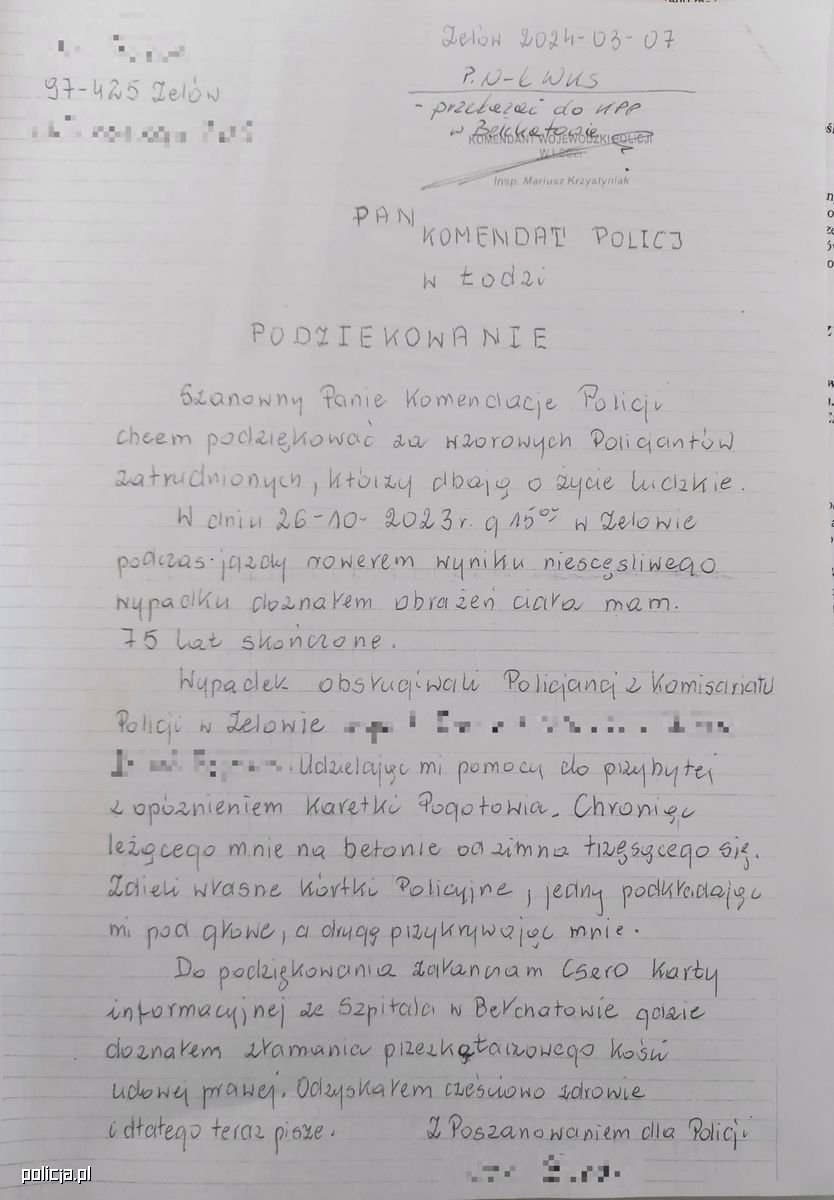 Zelów 2024-03-07
97-425 Zelów
P. N-ł WKS
- przekazać do KPP
w Bełchatowie
KOMENDANT WOJEWÓDZKI POLICJI
W ŁODZI
Insp. Mariusz Krzystyniak
PAN
KOMENDAT POLICJ
w Łodzi
PODZIEKOWANIE
Szanowny Panie Komendacje Policji
chcem podziękować za wzorowych Policjantów
zatrudnionych, którzy dbają o życie ludzkie.
W dniu 26-10-2023r. g 15⁰⁵ w Zelowie
podczas jazdy rowerem wyniku niescęsliwego
wypadku doznałem obrażeń ciała mam.
75 lat skończone.
Wypadek obsługiwali Policjanci z Komisariatu
Policji w Zelowie
. Udzielając mi pomocy do przybytej
z opóznieniem Karetki Pogotowia. Chroniąc
leżącego mnie na betonie od zimna trzęsącego się.
Zdieli własne kórtki Policyjne, jedny podkładając
mi pod głowe, a drugą przykrywając mnie.
Do podziękowania załanciam Csero Karty
informacyjnej ze Szpitala w Bełchatowie gdzie
doznałem złamania przezkątaczowego kości
udowej prawej. Odzyskałem cześciowo zdrowie
i dłatego teraz pisze.
Z Poszanowaniem dla Policji
policja.pl